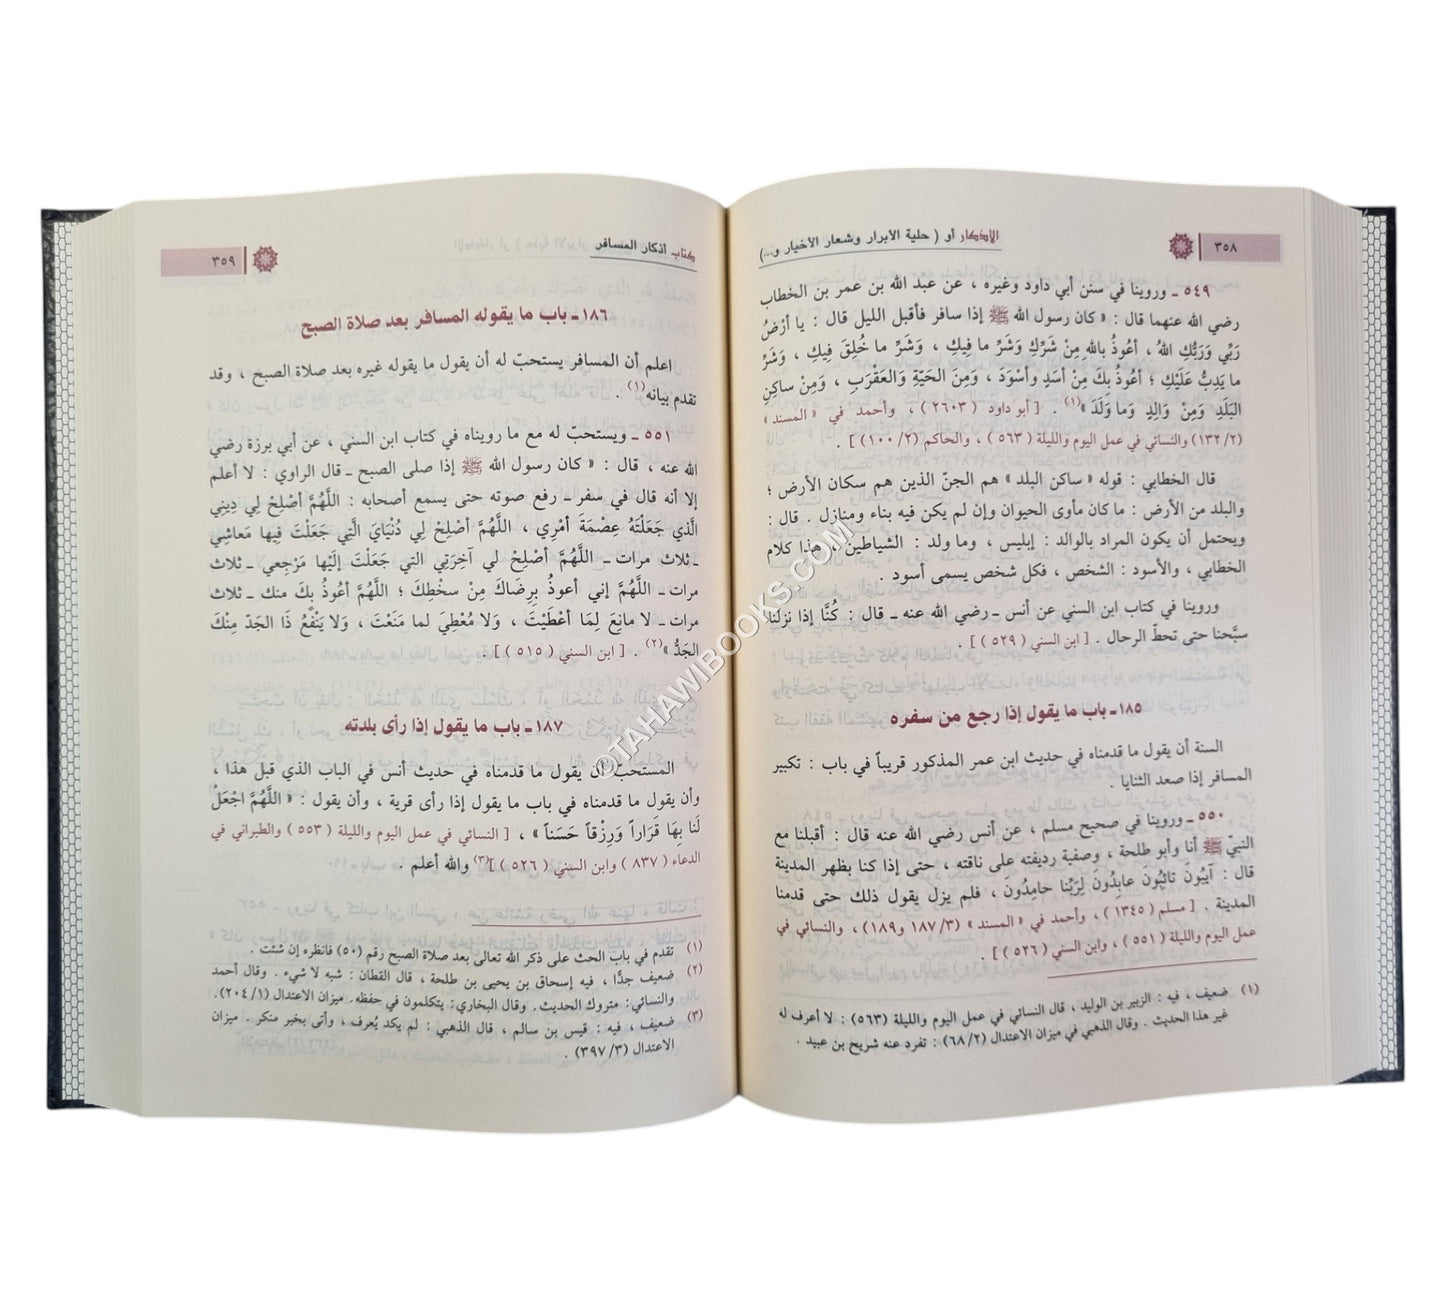 ٣٥٨
الأذكار أو ( حلية الأبرار وشعار الأخيار و...)
٥٤٩ ـ وروينا في سنن أبي داود وغيره ، عن عبد الله بن عمر بن الخطاب
رضي الله عنهما قال : « كان رسول الله ﷺ إذا سافر فأقبل الليل قال : يا أرْضُ
رَبِّي وَرَبُّكِ اللهُ ، أعُوذُ باللهِ مِنْ شَرِّكِ وَشَرِّ ما فِيكِ ، وَشَرِّ ما خُلِقَ فِيكِ ، وَشَرِّ
ما يَدِبُّ عَلَيْكِ ؛ أعُوذُ بِكَ مِنْ أسَدٍ وأسْوَدَ ، وَمِنَ الحَيّةِ وَالعَقْرَبِ ، وَمِنْ ساكِنِ
البَلَدِ وَمِنْ وَالِدٍ وَما وَلَدَ »(١) . [ أبو داود ( ٢٦٠٣ ) ، وأحمد في « المسند »
(١٣٢/٢) والنسائي في عمل اليوم والليلة ( ٥٦٣ ) ، والحاكم (١٠٠/٢) ] .
قال الخطابي : قوله « ساكن البلد » هم الجنّ الذين هم سكان الأرض ؛
والبلد من الأرض : ما كان مأوى الحيوان وإن لم يكن فيه بناء ومنازل . قال :
ويحتمل أن يكون المراد بالوالد : إبليس ، وما ولد : الشياطين ، هذا كلام
الخطابي ، والأسود : الشخص ، فكل شخص يسمى أسود .
وروينا في كتاب ابن السني عن أنس ـ رضي الله عنه ـ قال : كُنَّا إذا نزلنا
سبَّحنا حتى تحطّ الرحال . [ ابن السني ( ٥٢٩ ) ] .
١٨٥ ـ باب ما يقول إذا رجع من سفره
السنة أن يقول ما قدمناه في حديث ابن عمر المذكور قريباً في باب : تكبير
المسافر إذا صعد الثنايا .
٥٥٠ ـ وروينا في صحيح مسلم ، عن أنس رضي الله عنه قال : أقبلنا مع
النبيّ ﷺ أنا وأبو طلحة ، وصفية رديفته على ناقته ، حتى إذا كنا بظهر المدينة
قال : آيِبُونَ تائِبُونَ عابِدُونَ لِرَبِّنا حامِدُونَ ، فلم يزل يقول ذلك حتى قدمنا
المدينة . [ مسلم ( ١٣٤٥ ) ، وأحمد في « المسند » (١٨٧/٣ و١٨٩) ، والنسائي في
عمل اليوم والليلة ( ٥٥١ ) ، وابن السني ( ٥٢٦ ) ] .
(١) ضعيف ، فيه : الزبير بن الوليد ، قال النسائي في عمل اليوم والليلة (٥٦٣) : لا أعرف له
غير هذا الحديث . وقال الذهبي في ميزان الاعتدال (٦٨/٢) : تفرد عنه شريح بن عبيد .
كتاب أذكار المسافر
٣٥٩
١٨٦ ـ باب ما يقوله المسافر بعد صلاة الصبح
اعلم أن المسافر يستحبّ له أن يقول ما يقوله غيره بعد صلاة الصبح ، وقد
تقدم بيانه(١) .
٥٥١ ـ ويستحبّ له مع ما رويناه في كتاب ابن السني ، عن أبي برزة رضي
الله عنه ، قال : « كان رسول الله ﷺ إذا صلى الصبح ـ قال الراوي : لا أعلم
إلا أنه قال في سفر ـ رفع صوته حتى يسمع أصحابه : اللَّهُمَّ أصْلِحْ لِي دِينِي
الَّذي جَعَلْتَهُ عِصْمَةَ أمْرِي ، اللَّهُمَّ أصْلِحْ لِي دُنْيَايَ الَّتِي جَعَلْتَ فِيها مَعاشِي
ـ ثلاث مرات ـ اللَّهُمَّ أصْلِحْ لي آخِرَتِي التي جَعَلْتَ إلَيْها مَرْجِعي ـ ثلاث
مرات ـ اللَّهُمَّ إني أعوذُ بِرِضَاكَ مِنْ سخْطِكَ ؛ اللَّهُمَّ أعُوذُ بِكَ منك ـ ثلاث
مرات ـ لا مانِعَ لِمَا أعْطَيْتَ ، وَلا مُعْطِيَ لما مَنَعْتَ ، وَلا يَنْفَعُ ذَا الجَدّ مِنْكَ
الجَدُّ »(٢) . [ ابن السني ( ٥١٥ ) ] .
١٨٧ ـ باب ما يقول إذا رأى بلدته
المستحبّ أن يقول ما قدمناه في حديث أنس في الباب الذي قبل هذا ،
وأن يقول ما قدمناه في باب ما يقول إذا رأى قرية ، وأن يقول : « اللَّهُمَّ اجْعَلْ
لَنا بِهَا قَرَاراً وَرِزْقاً حَسَناً » ، [ النسائي في عمل اليوم والليلة ( ٥٥٣ ) والطبراني في
الدعاء ( ٨٣٧ ) وابن السني ( ٥٢٦ ) ](٣) والله أعلم .
(١) تقدم في باب الحث على ذكر الله تعالى بعد صلاة الصبح رقم (٥٠) فانظره إن شئت .
(٢) ضعيف جدًّا ، فيه إسحاق بن يحيى بن طلحة ، قال القطان : شبه لا شيء . وقال أحمد
والنسائي: متروك الحديث. وقال البخاري: يتكلمون في حفظه. ميزان الاعتدال (٢٠٤/١).
(٣) ضعيف ، فيه : قيس بن سالم ، قال الذهبي : لم يكد يُعرف ، وأتى بخبر منكر . ميزان
الاعتدال (٣٩٧/٣) .
©TAHAWIBOOKS.COM